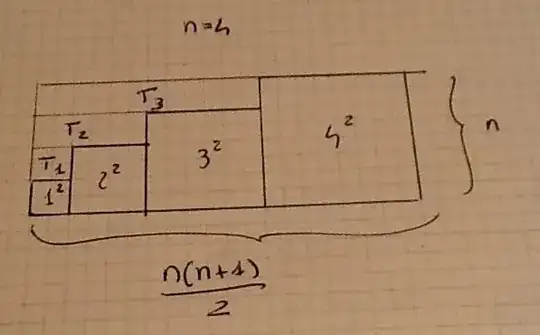 n=4
T₃
T₂
T₁
1²
2²
3²
4²
n
n(n+1)
2